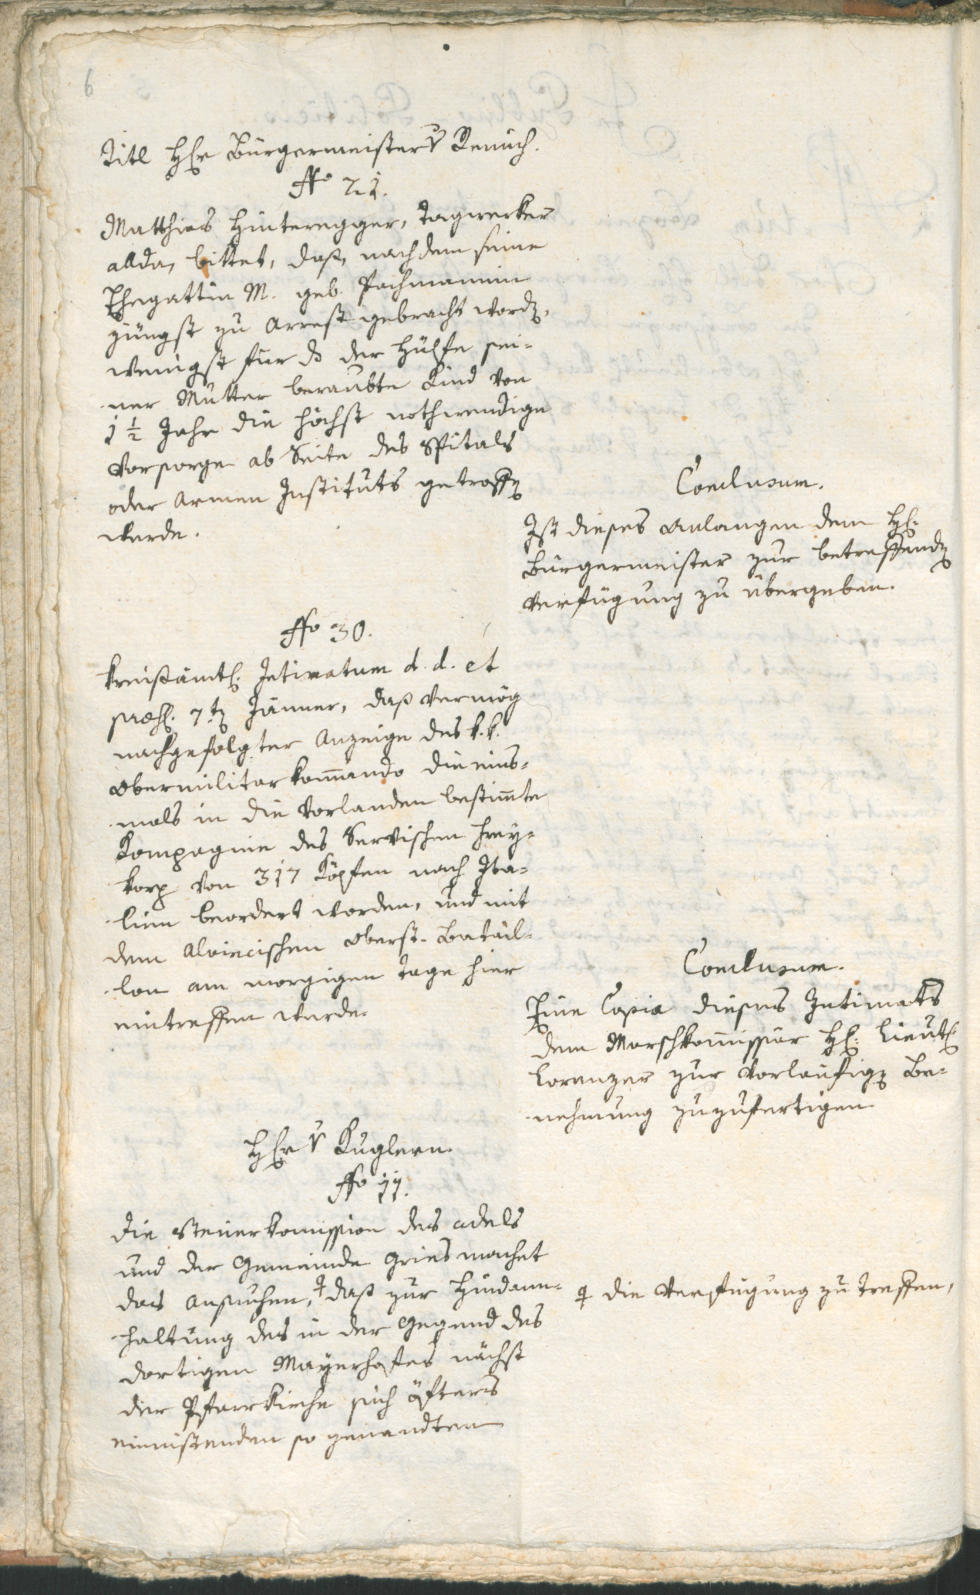 6
Titl Herr Bürgermeister v Remich.
No 21.
Matthias Hinteregger, Tagwerker
allda, bittet, daß, nachdem seine
Ehegattin M. geb. Pachmannin
jüngst zu Arrest gebracht word,
wenigst für ds der Hülfe sei-
ner Mutter beraubte Kind von
1 1/2 Jahr die höchst nothwendige
Vorsorge ab Seite des Spitals
oder Armen Instituts getroffen
werde.
Conclusum.
Ist dieses Anlangen dem H:
Bürgermeister zur betreffend
Verfügung zu übergeben.
No 30.
Kreisämtl: Intimatum d. d. et
præs: 7ten Jänner, daß vermög
nachgefolgter Anzeige des k. k.
Obermilitarkommando die eins-
mals in die Vorlanden bestimmte
Kompagnie des Servischen Frey-
korp von 317 Köpfen nach Ita-
lien beordert worden, und mit
dem Alvincischen Oberst-Batail-
lon am morgigen Tage hier
eintreffen werde.
Conclusum.
Eine Copia dieses Intimats
dem Marschkommissär H: Lieut:
Lorenzer zur vorläufig Be-
nehmung zuzufertigen
Herr v Kuglern.
No 11.
Die Steuerkommission des Adels
und der Gemeinde Gries machet
das Ansuchen, daß zur Hindann-
haltung des in der Gegend des
dortigen Mayerhofes nächst
der Pfarrkirche sich öfters
einnistenden so genandten
die Verfügung zu treffen,